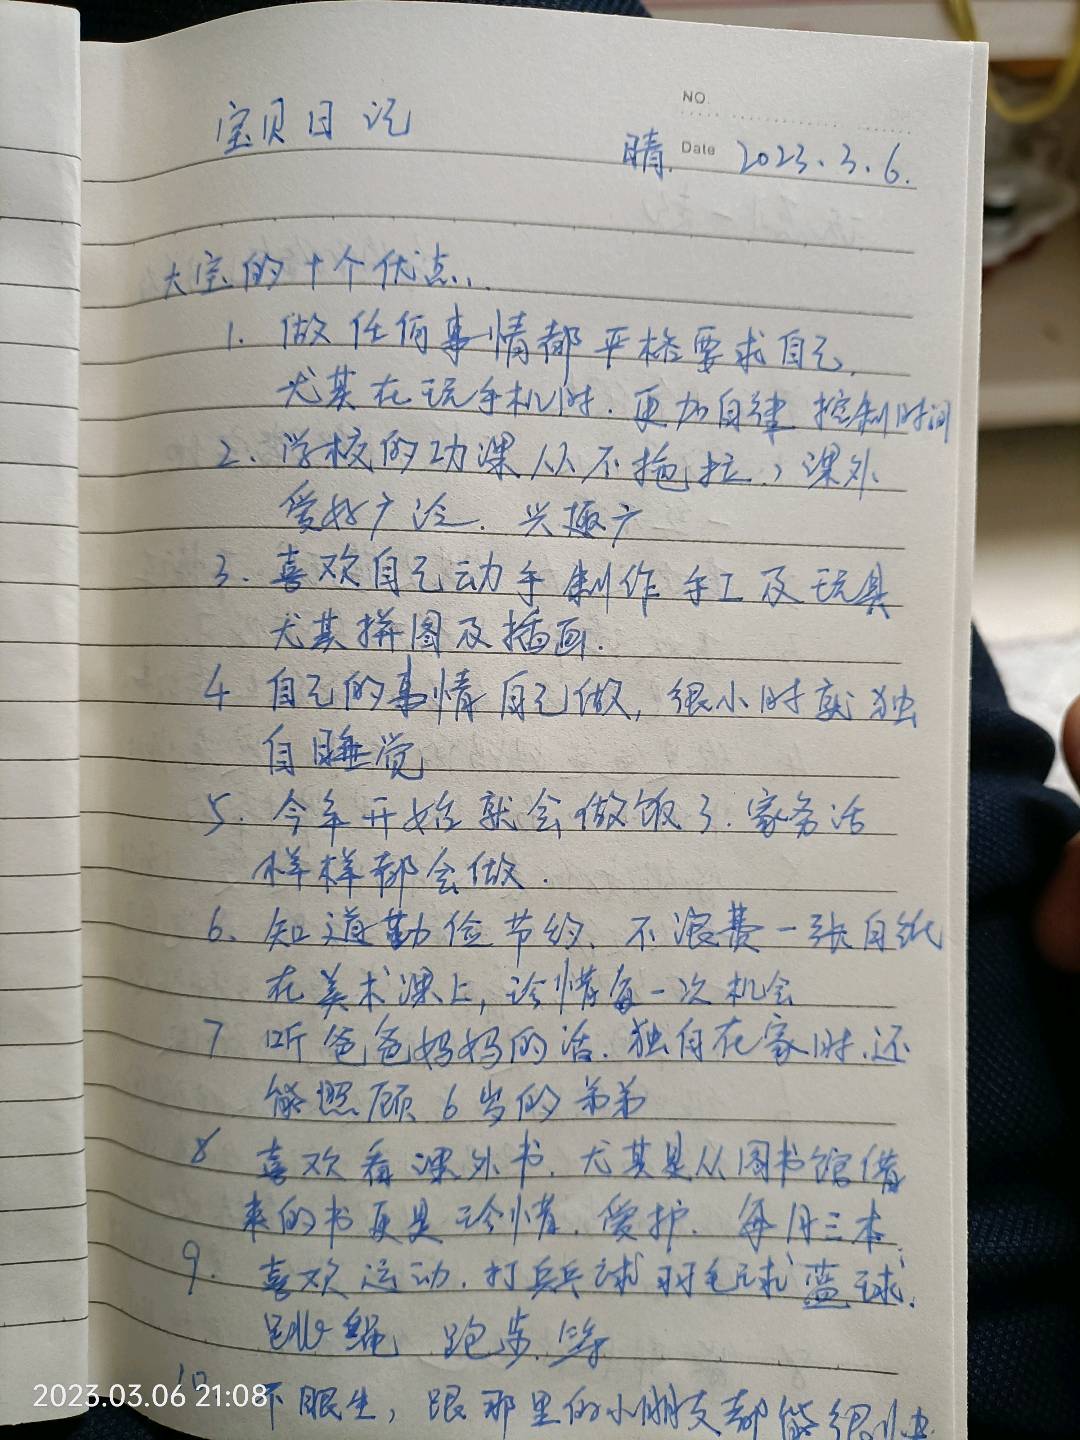 宝贝日记
NO.
晴. Date 2023.3.6.
大宝的十个优点.
1. 做任何事情都严格要求自己,
尤其在玩手机时.更加自律 控制时间
2. 学校的功课从不拖拉,课外
爱好广泛. 兴趣广
3. 喜欢自己动手制作手工及玩具
尤其拼图及插画.
4 自己的事情自己做,很小时就独
自睡觉
5. 今年开始就会做饭了.家务活
样样都会做.
6. 知道勤俭节约、不浪费一张白纸
在美术课上,珍惜每一次机会
7 听爸爸妈妈的话.独自在家时.还
能照顾6岁的弟弟
8 喜欢看课外书.尤其是从图书馆借
来的书更是珍惜.爱护. 每月三本.
9. 喜欢运动.打乒乓球 羽毛球 蓝球.
跳绳 跑步.等
10 不眼生,跟那里的小朋友都能很快
2023.03.06 21:08